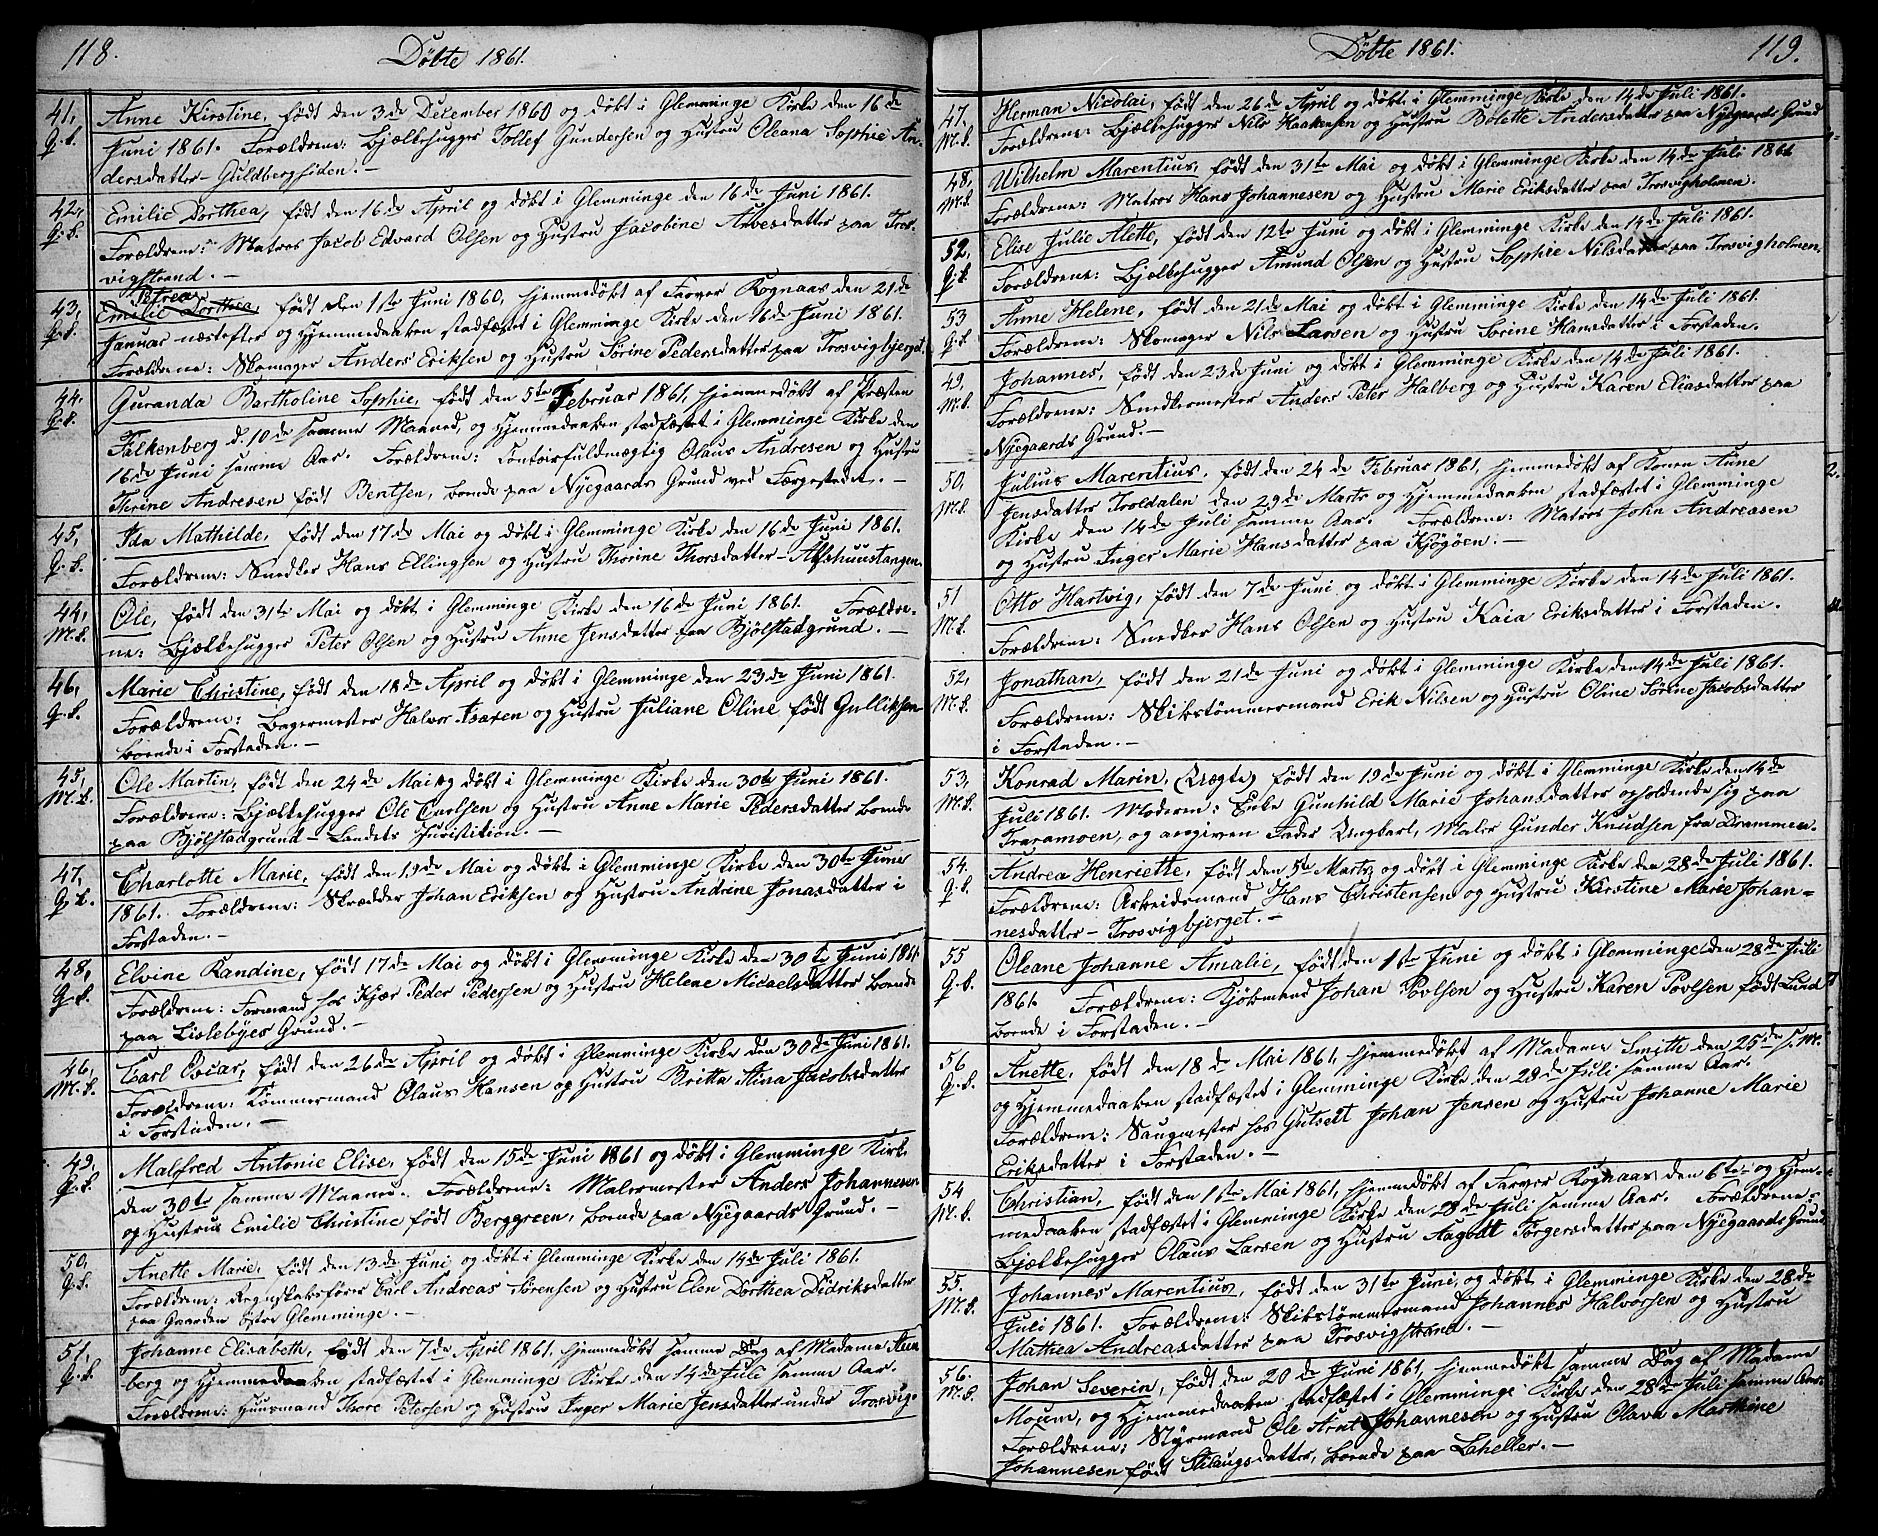 118.
Døbte 1861.
41, Anne Kirstine, født den 3de December 1860 og døbt i Glemminge Kirke den 16de
Q.k. Juni 1861. Forældrene: Bjælkehugger Tollef Gundersen og Hustru Oleana Sophie An-
dersdatter - Guldbergsiden. -
42, Emilie Dorthea, født den 16de April og døbt i Glemminge den 16de Juni 1861.
Q.k. Forældrene: Matros Jacob Edvard Olsen og Hustru Jacobine Arvesdatter paa Tros-
vigstrand. -
Petrea
43, Emilie Dorthea, født den 1ste Juni 1860, hjemmedøbt af Farver Rognaas den 21de
Q.k. Januar næstefter og Hjemmedaaben stadfæstet i Glemminge Kirke den 16de Juni 1861.
Forældrene: Skomager Anders Eriksen og Hustru Sørine Pedersdatter paa Trosvigbjerget.
44. Guranda Bartholine Sophie, født den 5te Februar 1861, hjemmedøbt af Præsten
Q.k. Falkenberg d. 10de samme Maaned, og Hjemmedaaben stadfæstet i Glemminge Kirke den
16de Juni samme Aar. Forældrene: Contoirfuldmægtig Olaus Andresen og Hustru
Thrine Andresen født Bentsen, boende paa Nyegaards Grund ved Færgestedet. -
45, Ida Mathilde, født den 17de Mai og døbt i Glemminge Kirke den 16de Juni 1861.
Q.k. Forældrene: Snedker Hans Ellingsen og Hustru Thorine Thorsdatter - Alfshuustangen.
44, Ole, født den 31te Mai og døbt i Glemminge Kirke den 16de Juni 1861. Forældre-
M.k. ne: Bjælkehugger Peter Olsen og Hustru Anne Jensdatter paa Bjølstadgrund. -
46, Marie Christine, født den 18de April og døbt i Glemminge den 23de Juni 1861.
Q.k. Forældrene: Bagermester Halvor Isaxen og Hustru Juliane Oline født Gulliksen
boende i Forstaden. -
45, Ole Martin, født den 24de Mai og døbt i Glemminge Kirke den 30te Juni 1861.
M.k. Forældrene: Bjælkehugger Ole Carlsen og Hustru Anne Marie Pedersdatter boende
paa Bjølstadgrund - Landets Juristition. -
47, Charlotte Marie, født den 19de Mai og døbt i Glemminge Kirke den 30te Juni
Q.k. 1861. Forældrene: Skrædder Johan Eriksen og Hustru Andrine Jonasdatter i
Forstaden. -
48, Elvine Randine, født 17de Mai og døbt i Glemminge Kirke den 30te Juni 1861
Q.k. Forældrene: Formand hos Kjær Peder Pedersen og Hustru Helene Micaelsdatter boende
paa Lislebyes Grund. -
46, Carl Oscar, født den 26de April og døbt i Glemminge Kirke den 30de Juni 1861.
M.k. Forældrene: Tømmermand Olaus Hansen og Hustru Britta Stina Jacobsdatter
i Forstaden. -
49, Malfred Antonie Elise, født den 15de Juni 1861 og døbt i Glemminge Kirk.
Q.k. den 30te samme Maaned. Forældrene: Malermester Anders Johannesen
og Hustrue Emilie Christine født Berggreen, boende paa Nyegaards Grund. -
50, Anette Marie, født den 13de Juni og døbt i Glemminge Kirke den 14de Juli 1861.
Q.k. Forældrene: Regnskabsfører Carl Andreas Sørensen og Hustru Elen Dorthea Didriksdatter
paa Gaarden Østre Glemminge. -
51, Johanne Elisabeth, født den 7de April 1861, hjemmedøbt samme Dag af Madame Aam
Q.k. berg og Hjemmedaaben stadfæstet i Glemminge Kirke den 14de Juli samme Aar.
Forældrene: Huusmand Thore Petersen og Hustru Inger Marie Jensdatter under Trosvig.
Døbte 1861.
119.
47. Herman Nicolai, født den 26de April og døbt i Glemminge Kirke den 14de Juli 1861.
M.k. Forældrene: Bjælkehugger Nils Haakensen og Hustru Bolette Andersdatter paa Nyegaards Grund
48, Wilhelm Marentius, født den 31te Mai og døbt i Glemminge Kirke den 14de Juli 1861
M.k. Forældrene: Matros Hans Johannesen og Hustru Marie Eriksdatter paa Trosvigholmen.
52, Elise Julie Alette, født den 12te Juni og døbt i Glemminge Kirke den 14de Juli 1861.
Q.k. Forældrene: Bjælkehugger Amund Olsen og Hustru Sophie Nilsdatter paa Trosvigholmen.
53 Anne Helene, født den 21de Mai og døbt i Glemminge Kirke den 14de Juli 1861.
Q.k. Forældrene: Skomager Nils Larsen og Hustru Sørine Hansdatter i Forstaden.
49, Johannes, født den 23de Juni og døbt i Glemminge Kirke den 14de Juli 1861.
M.k. Forældrene: Snedkermester Anders Peter Halberg og Hustru Karen Eliasdatter paa
Nyegaards Grund. -
50, Julius Marentius, født den 24de Februar 1861, hjemmedøbt af Konen Anne
M.k. Jensdatter Troldalen den 29de Marts og Hjemmedaaben stadfæstet i Glemminge
Kirke den 14de Juli samme Aar. Forældrene: Matros John Andreasen
og Hustru Inger Marie Hansdatter paa Kjøgøen. -
51 Otto Hartvig, født den 7de Juni og døbt i Glemminge Kirke den 14de Juli 1861.
M.k. Forældrene: Snedker Hans Olsen og Hustru Kaia Eriksdatter i Forstaden.
52, Jonathan, født den 21de Juni og døbt i Glemminge Kirke den 14de Juli 1861.
M.k. Forældrene: Skibstømmermand Erik Nilsen og Hustru Oline Sørine Jacobsdatter
i Forstaden. -
53, Konrad Marin, (Uægte) født den 19de Juni og døbt i Glemminge Kirke den 14de
M.k. Juli 1861. Moderen: Enke Gunhild Marie Johansdatter opholdende sig paa
Traramoen, og angiven Fader Ungkarl, Maler Gunder Knudsen fra Drammen.
54. Andrea Henriette, født den 5te Marts og døbt i Glemminge Kirke den 28de Juli 1861.
Q.k. Forældrene: Arbeidsmand Hans Christensen og Hustru Kirstine Marie Johan-
nesdatter - Trosvigbjerget. -
55 Oleane Johanne Amalie, født den 1ste Juni og døbt i Glemminge den 28de Juli
Q.k. 1861 Forældrene: Kjøbmand Johan Povlsen og Hustru Karen Povlsen født Lund
boende i Forstaden. -
56 Anette, født den 18de Mai 1861, hjemmedøbt af Madame Smith den 25de s. M.
Q.k. og Hjemmedaaben stadfæstet i Glemminge Kirke den 28de Juli samme Aar.
Forældrene: Saugmester hos Gutsedt Johan Jensen og Hustru Johanne Marie
Eriksdatter i Forstaden. -
54 Christian, født den 1ste Mai 1861, hjemmedøbt af Farver Rognaas den 6te og Hjem-
M.k. medaaben stadfæstet i Glemminge Kirke den 28de Juli samme Aar. Forældrene:
Bjælkehugger Olaus Larsen og Hustru Aagodt Torgersdatter paa Nyegaards Grund
55. Johannes Marentius, født den 31te Juni, og døbt i Glemminge Kirke den 28de
M.k. Juli 1861. Forældrene: Skibstømmermand Johannes Halvorsen og Hustru
Mathea Andreasdatter paa Trosvigstrand. -
56. Johan Severin, født den 20de Juni 1861, hjemmedøbt samme Dag af Madame
M.k. Moum, og Hjemmedaaben stadfæstet i Glemminge Kirke den 28de Juli samme Aar.
Forældrene: Styrmand Ole Arnt Johannesen og Hustru Olava Marthine
Johannesen født Stilaugsdatter, boende paa Laheller. -